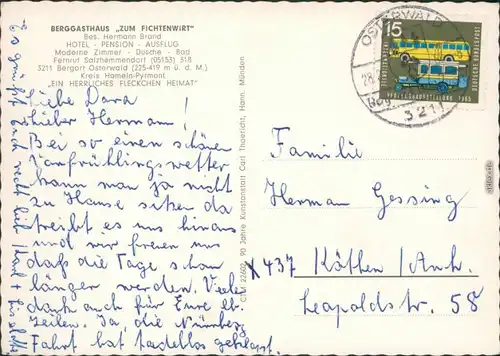 BERGGASTHAUS „ZUM FICHTENWIRT"
Bes. Hermann Brand
HOTEL - PENSION - AUSFLUG
Moderne Zimmer - Dusche - Bad
Fernruf Salzhemmendorf (05153) 318
3211 Bergort Osterwald (225-419 m ü. d. M.)
Kreis Hameln-Pyrmont
„EIN HERRLICHES FLECKCHEN HEIMAT"
Liebe Dora!
lieber Hermann!
Bei so einem schönen
Vorfrühlingswetter
kann man ja nicht
zu Hause sitzen da
treibt es uns hinaus
und wir freuen uns
daß die Tage schon
länger werden. Vielen
dank auch für Eure lb.
Zeilen. Ja, die Nürnberg
Fahrt hat tadellos geklappt.
Es grüßt Euch recht lieb
CTM 22602 90 Jahre Kunstanstalt Carl Thoericht, Hann. Münden
15
OSTERWALD
3211
Familie
Herman Gessing
X 437 Köthen / Anh.
Leopoldstr. 58